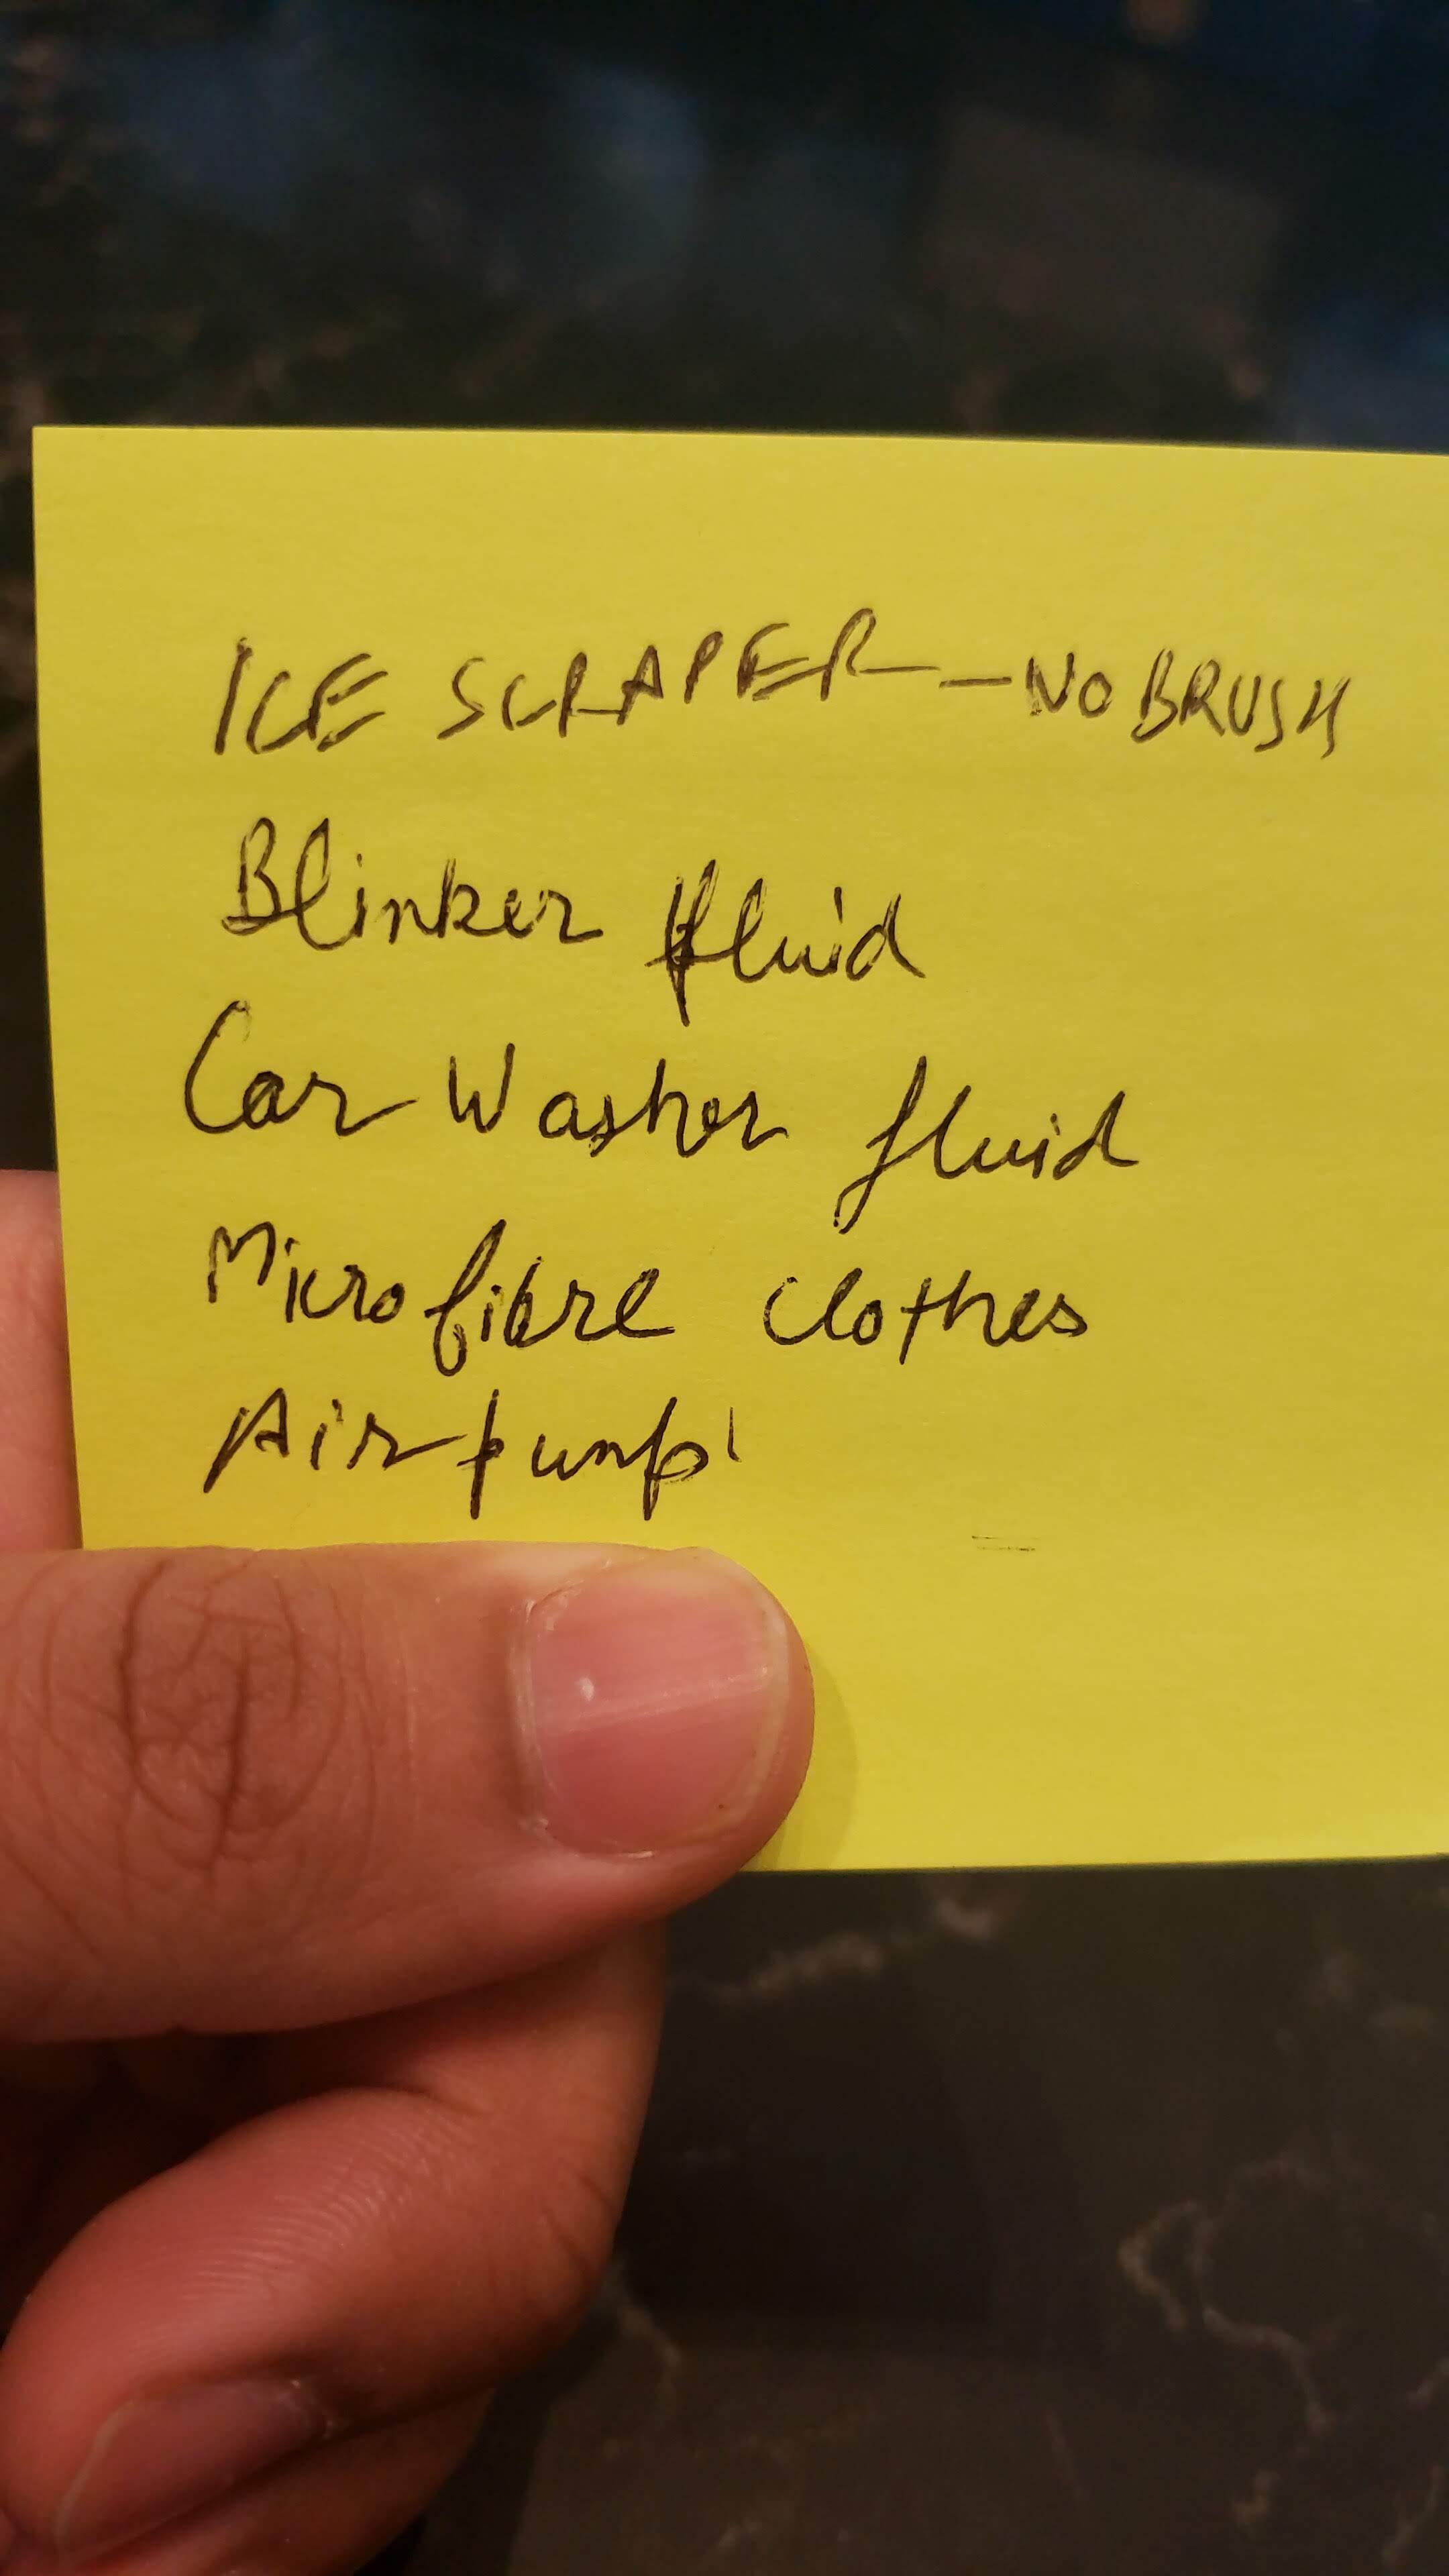 ICE SCRAPER - NO BRUSH
Blinker fluid
Car Washer fluid
Microfibre clothes
Air pump